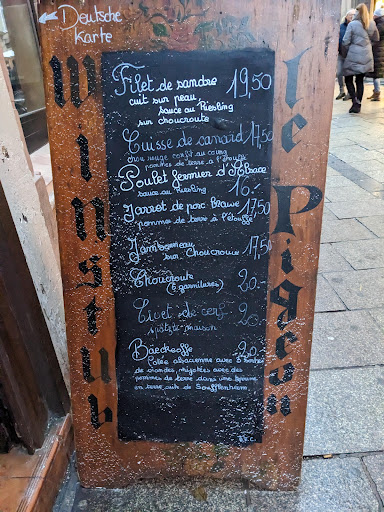 Deutsche
Karte
Winstub
le Pigeon
Filet de sandre 19,50
cuit sur peau
sauce au Riesling
sur choucroute
Cuisse de canard 17,50
chou rouge confit au coing
pommes de terre à l'étouffé
Poulet fermier d'Alsace
sauce au Riesling 16.-
Jarret de porc Braisé 17,50
pommes de terre à l'étouffé
Jambonneau 17,50
sur Choucroute
Choucroute 20.-
(6 garnitures)
Civet de cerf 20.-
spätzle maison
Bäeckeoffe 20.-
Potée alsacienne avec 3 sortes
de viandes, mijotées avec des
pommes de terre dans une terrine
en terre cuite de Soufflenheim